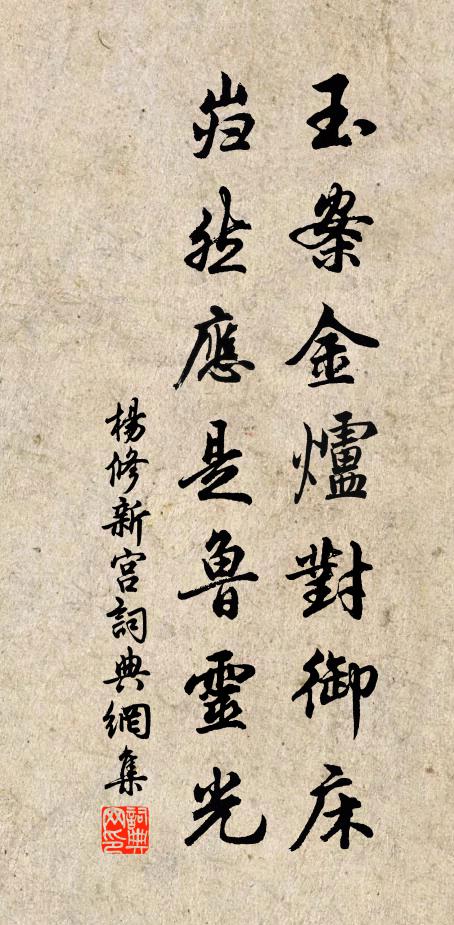 玉案金爐對御床
岿然應是魯靈光
楊修新宮詞典網集
詞典網印